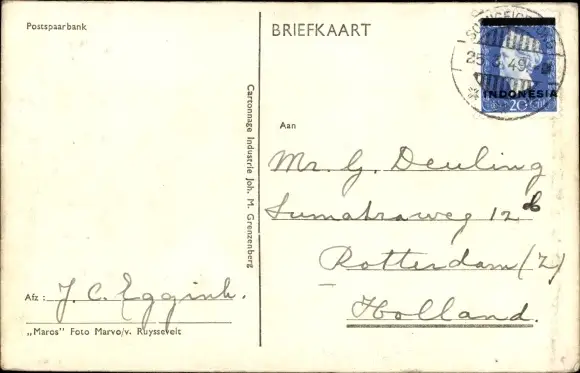 Postspaarbank
BRIEFKAART
25.3.49
INDONESIA
20
Cartonnage Industrie Joh. M. Grenzenberg
Aan
Mr. G. Deuling
Sumatraweg 12 b
Rotterdam (Z)
Holland.
Afz: J. C. Eggink.
„Maros" Foto Marvo/v. Ruyssevelt